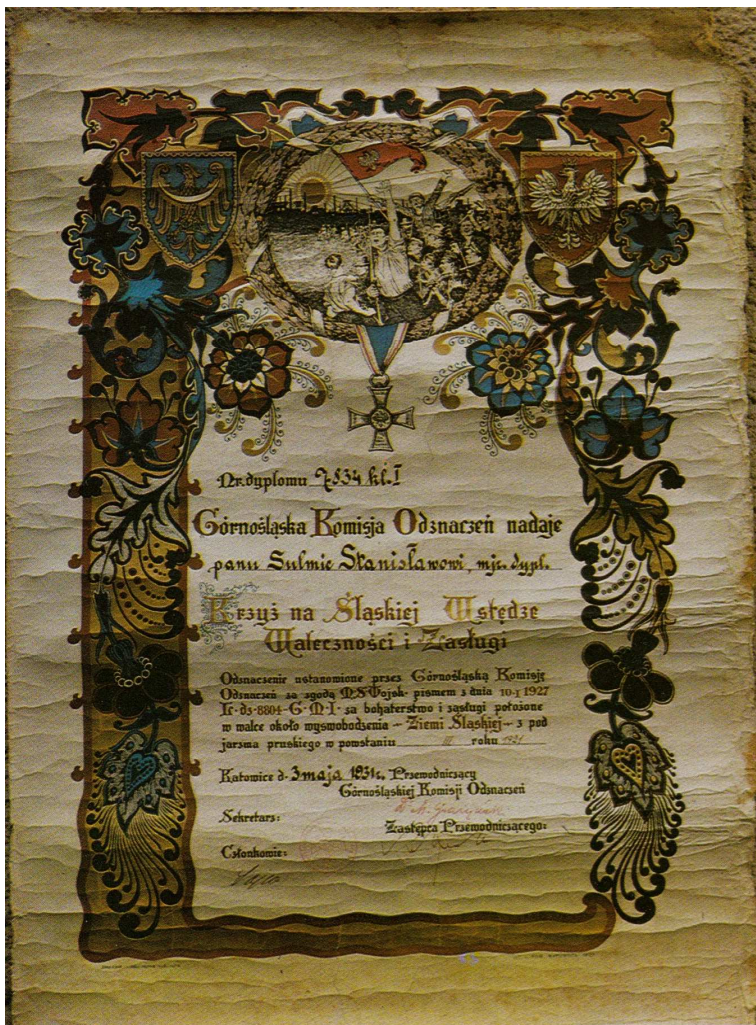 Nr. dyplomu 7534 kl. I
Górnośląska Komisja Odznaczeń nadaje
panu Sulmie Stanisławowi, mjr. dypl.
Krzyż na Śląskiej Wstędze
Waleczności i Zasługi
Odznaczenie ustanowione przez Górnośląską Komisję
Odznaczeń za zgodą M.S.Wojsk. pismem z dnia 10-I 1927
-8804-G-M-I- za bohaterstwo i zasługi położone
w walce około wyswobodzenia - Ziemi Śląskiej - z pod
jarzma pruskiego w powstaniu III roku 1921
Katowice d. 3 maja 1931r. Przewodniczący
Górnośląskiej Komisji Odznaczeń
Sekretarz:
Zastępca Przewodniczącego:
Członkowie: